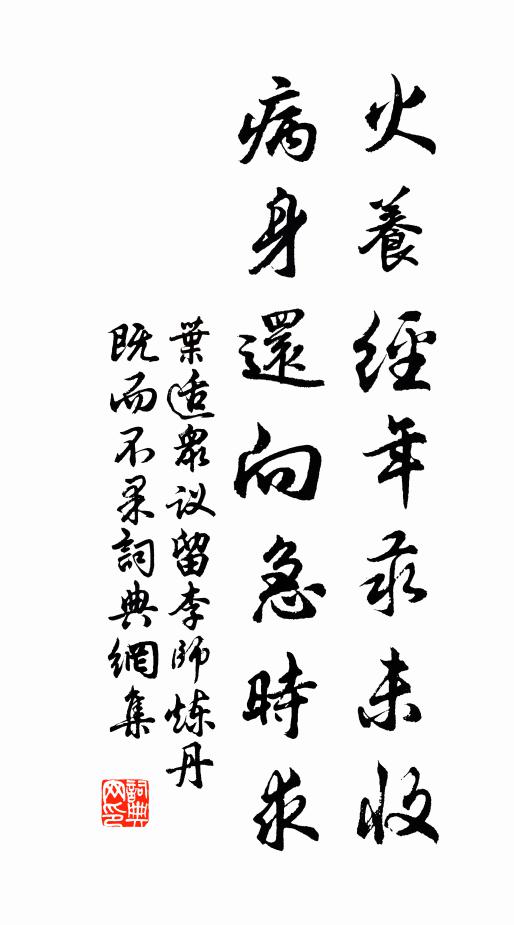 火養經年亦未收
病身還向急時求
葉适眾议留李师炼丹
既而不果詞典網集
詞典
网印